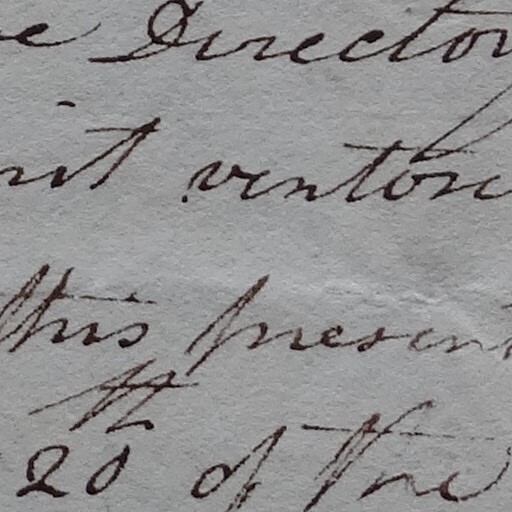 e Director
nit ventore
this present
20th of the